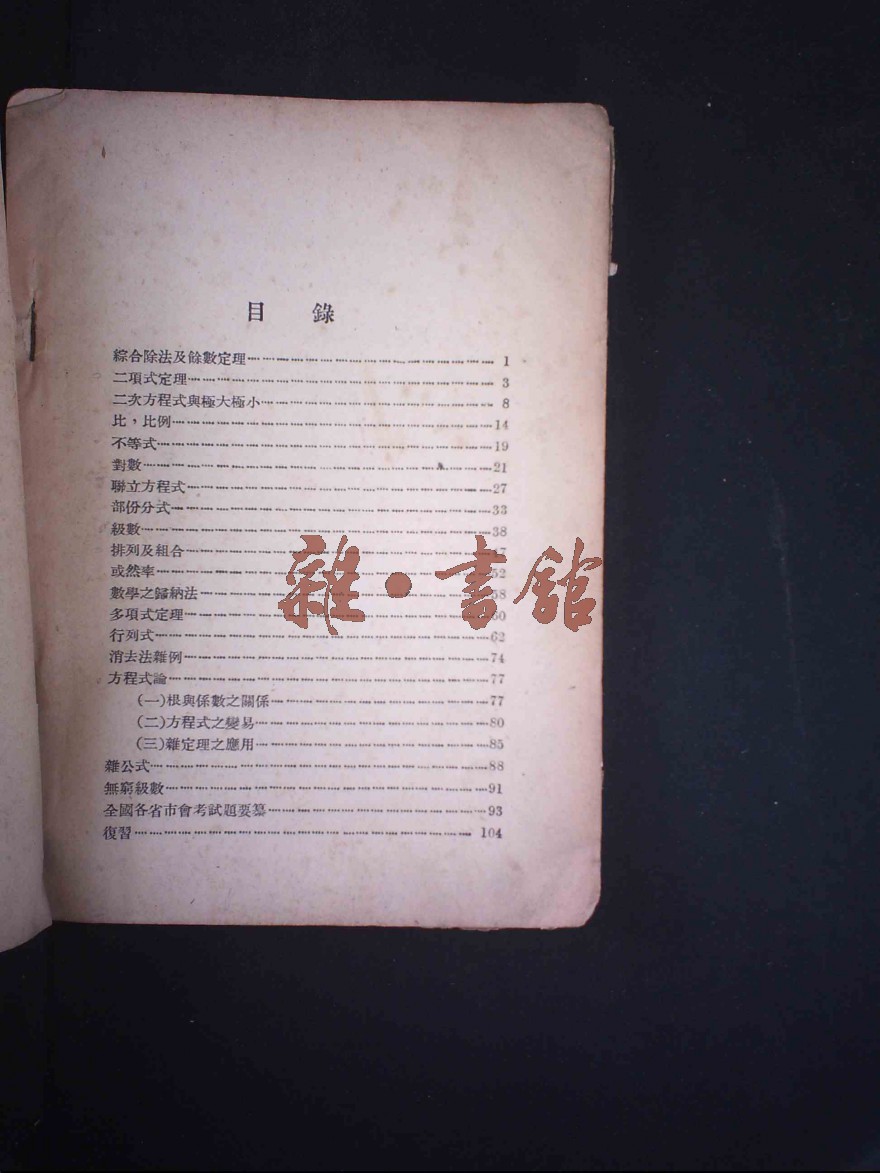 目　錄
綜合除法及餘數定理 1
二項式定理 3
二次方程式與極大極小 8
比，比例 14
不等式 19
對數 21
聯立方程式 27
部份分式 33
級數 38
排列及組合
或然率 52
數學之歸納法 58
多項式定理 60
行列式 62
消去法雜例 74
方程式論 77
(一)根與係數之關係 77
(二)方程式之變易 80
(三)雜定理之應用 85
雜公式 88
無窮級數 91
全國各省市會考試題要纂 93
復習 104
雜•書館